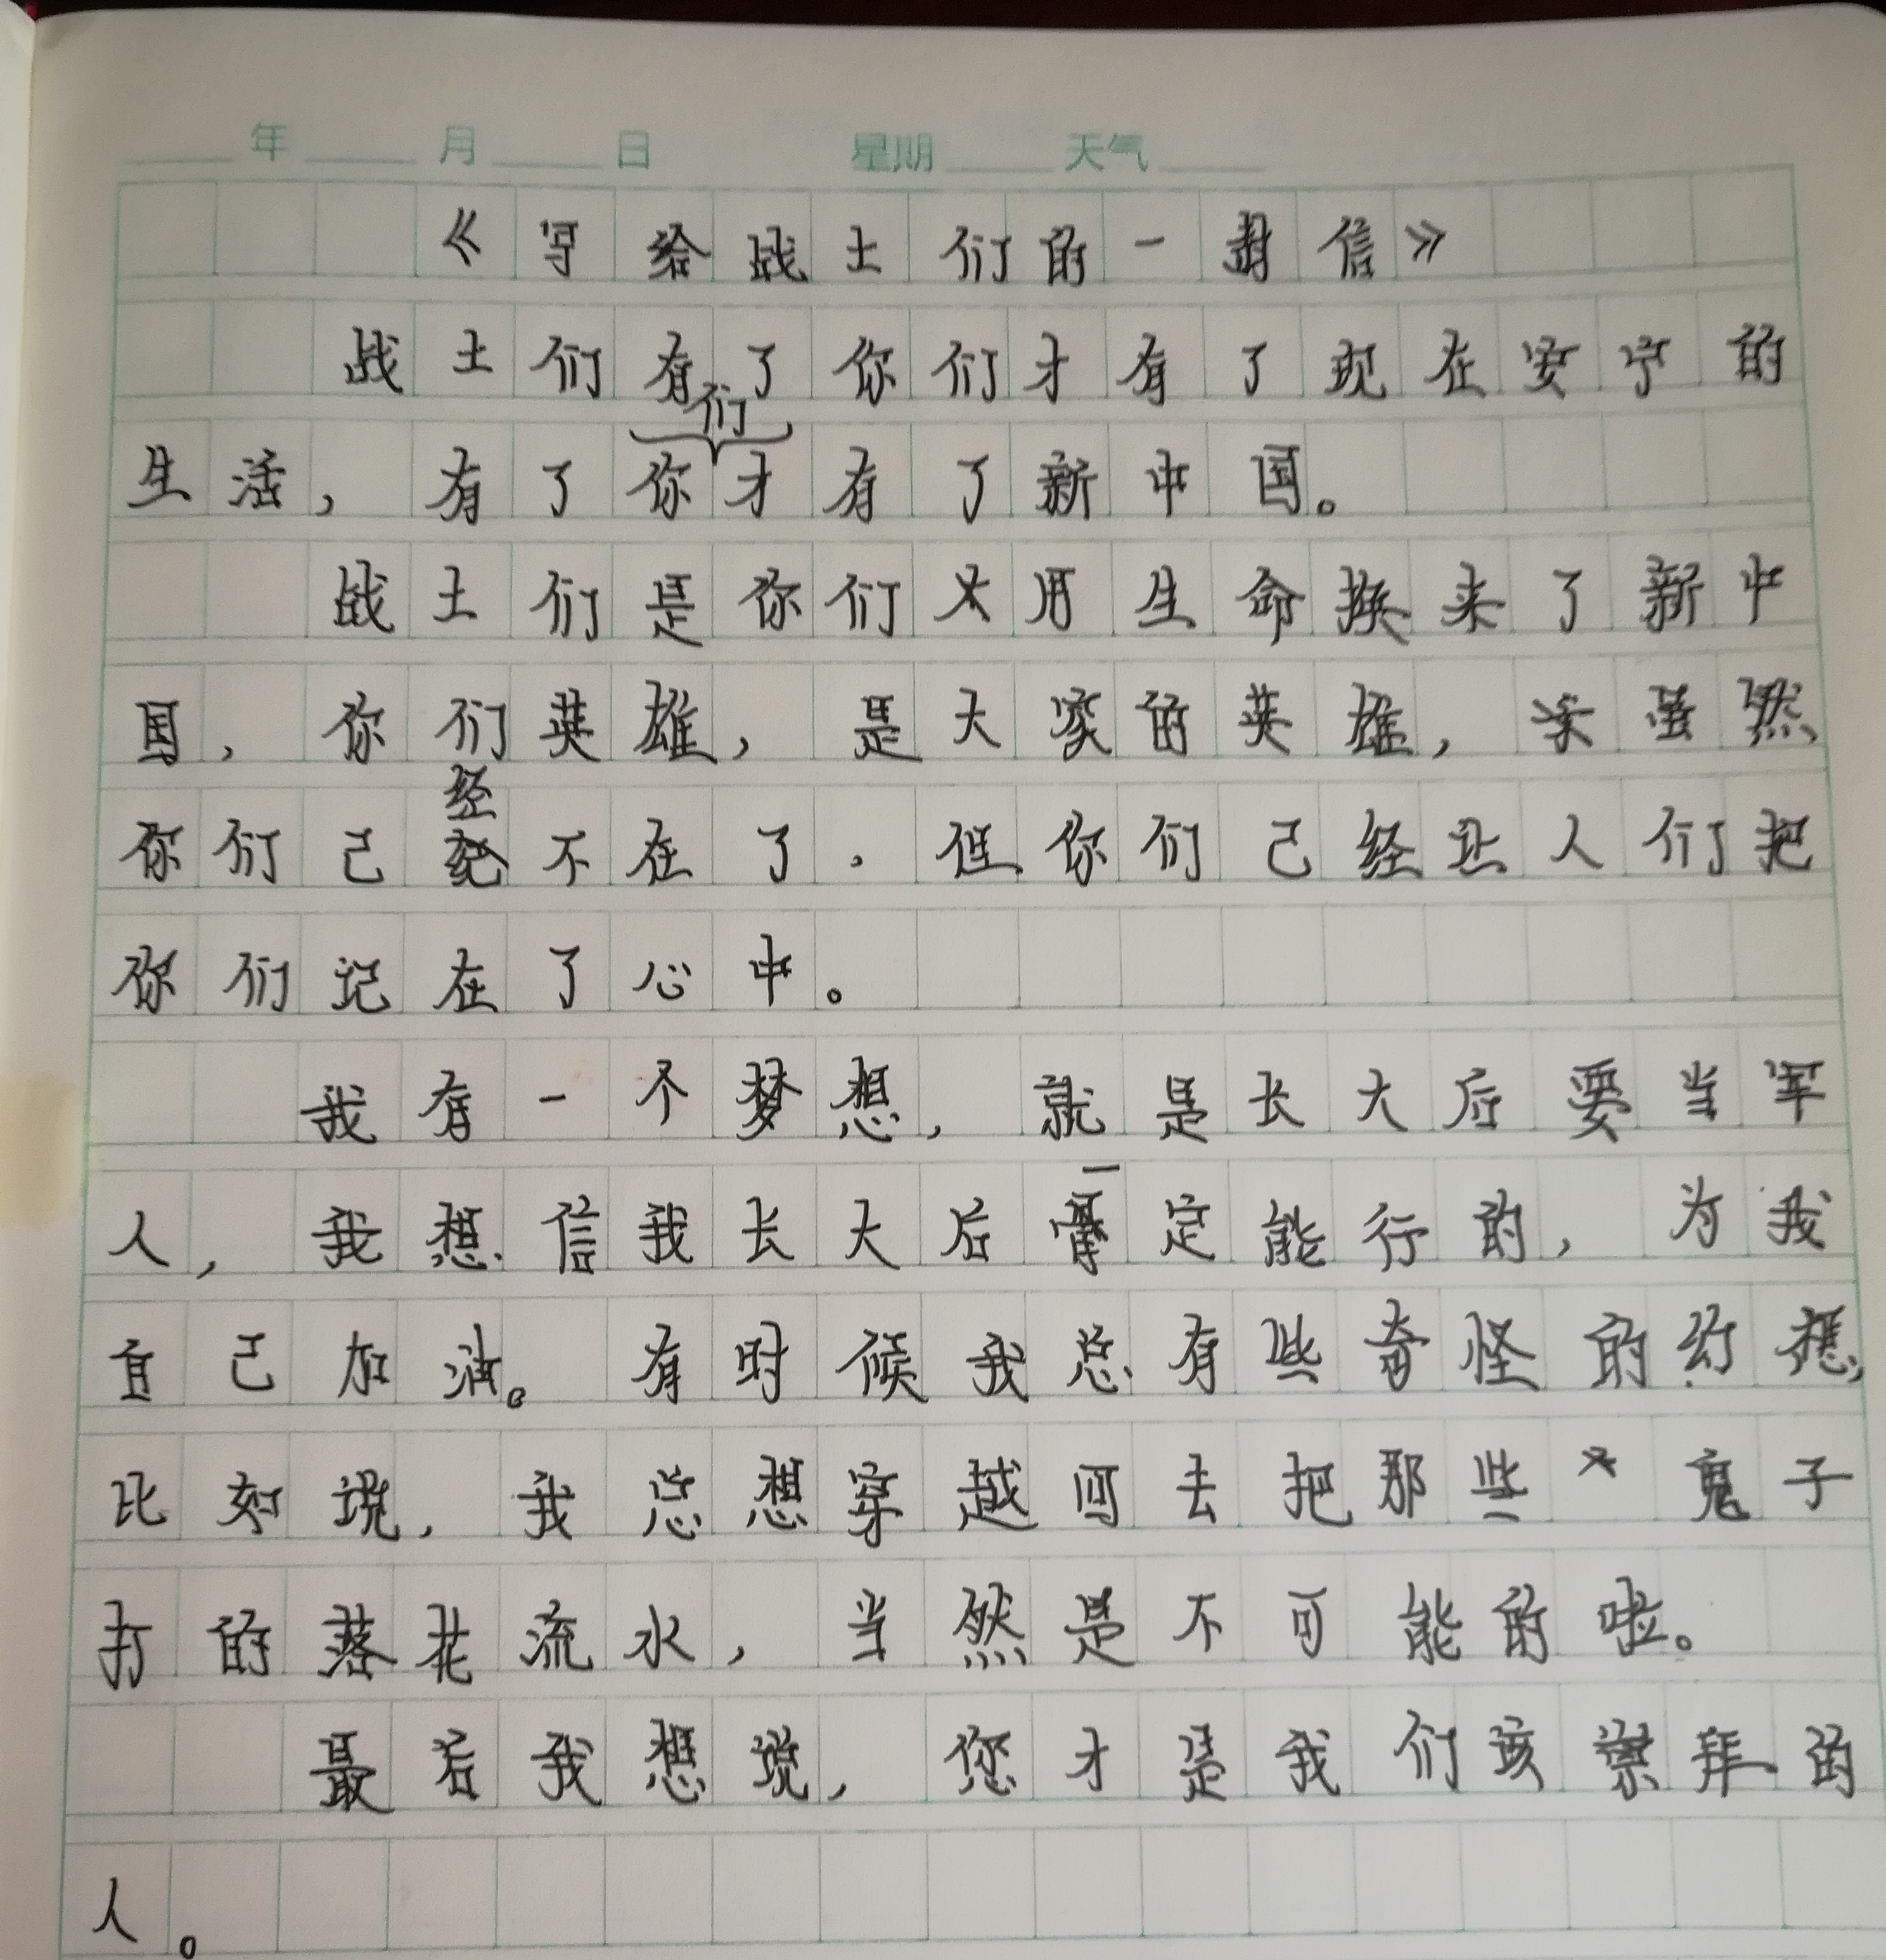 年 月 日 星期 天气
《写给战士们的一封信》
战士们有了你们才有了现在安宁的
生活，有了你们才有了新中国。
战士们是你们用生命换来了新中
国，你们英雄，是大家的英雄，虽然
你们已经不在了，但你们已经让人们把
你们记在了心中。
我有一个梦想，就是长大后要当军
人，我想信我长大后一定能行的，为我
自己加油。有时候我总有些奇怪的幻想，
比如说，我总想穿越回去把那些鬼子
打的落花流水，当然是不可能的啦。
最后我想说，您才是我们该崇拜的
人。